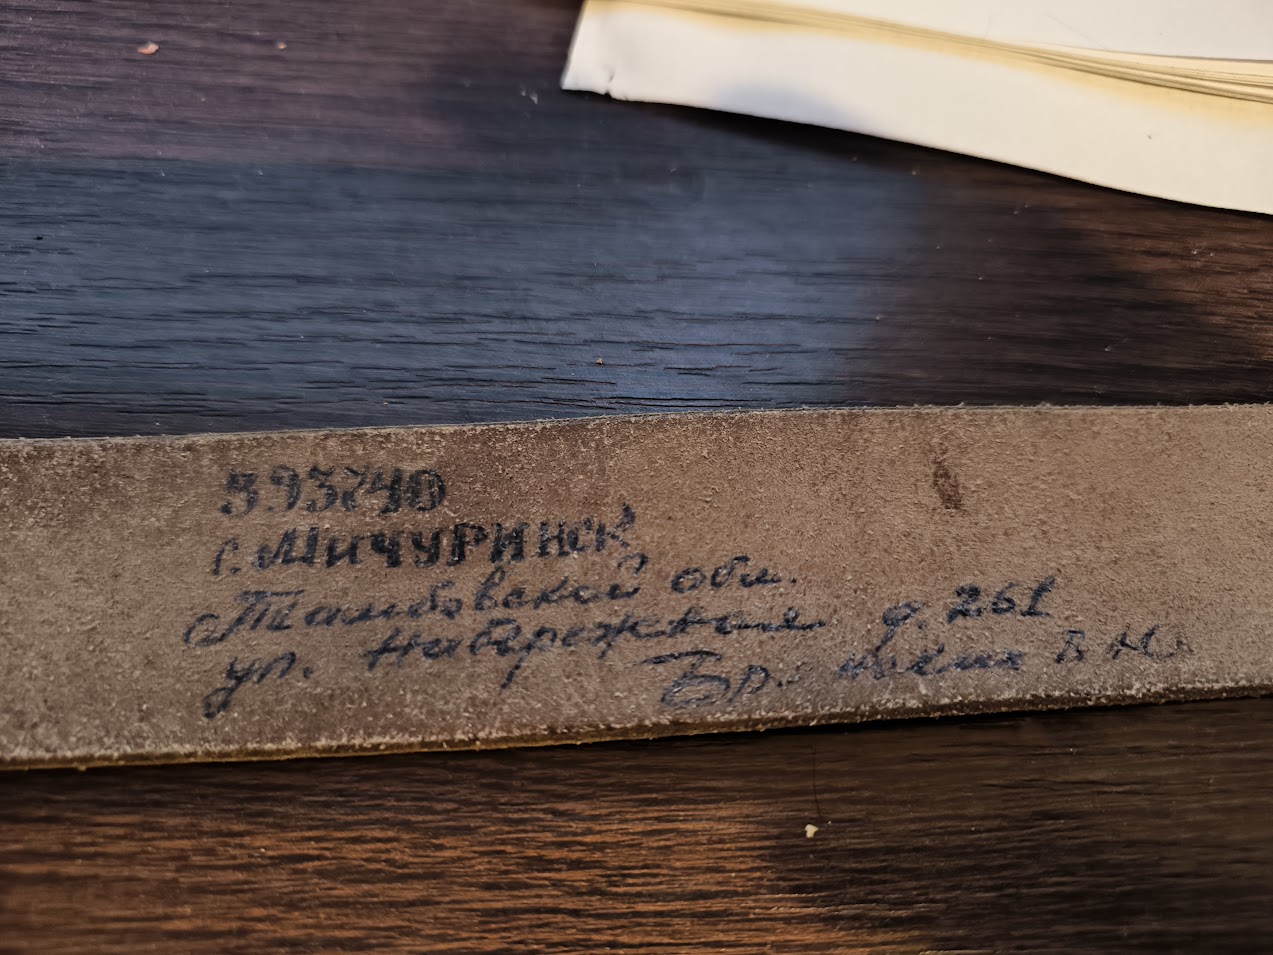 393740
г. Мичуринск
Тамбовской обл.
ул. Набережная д. 261
В Ю